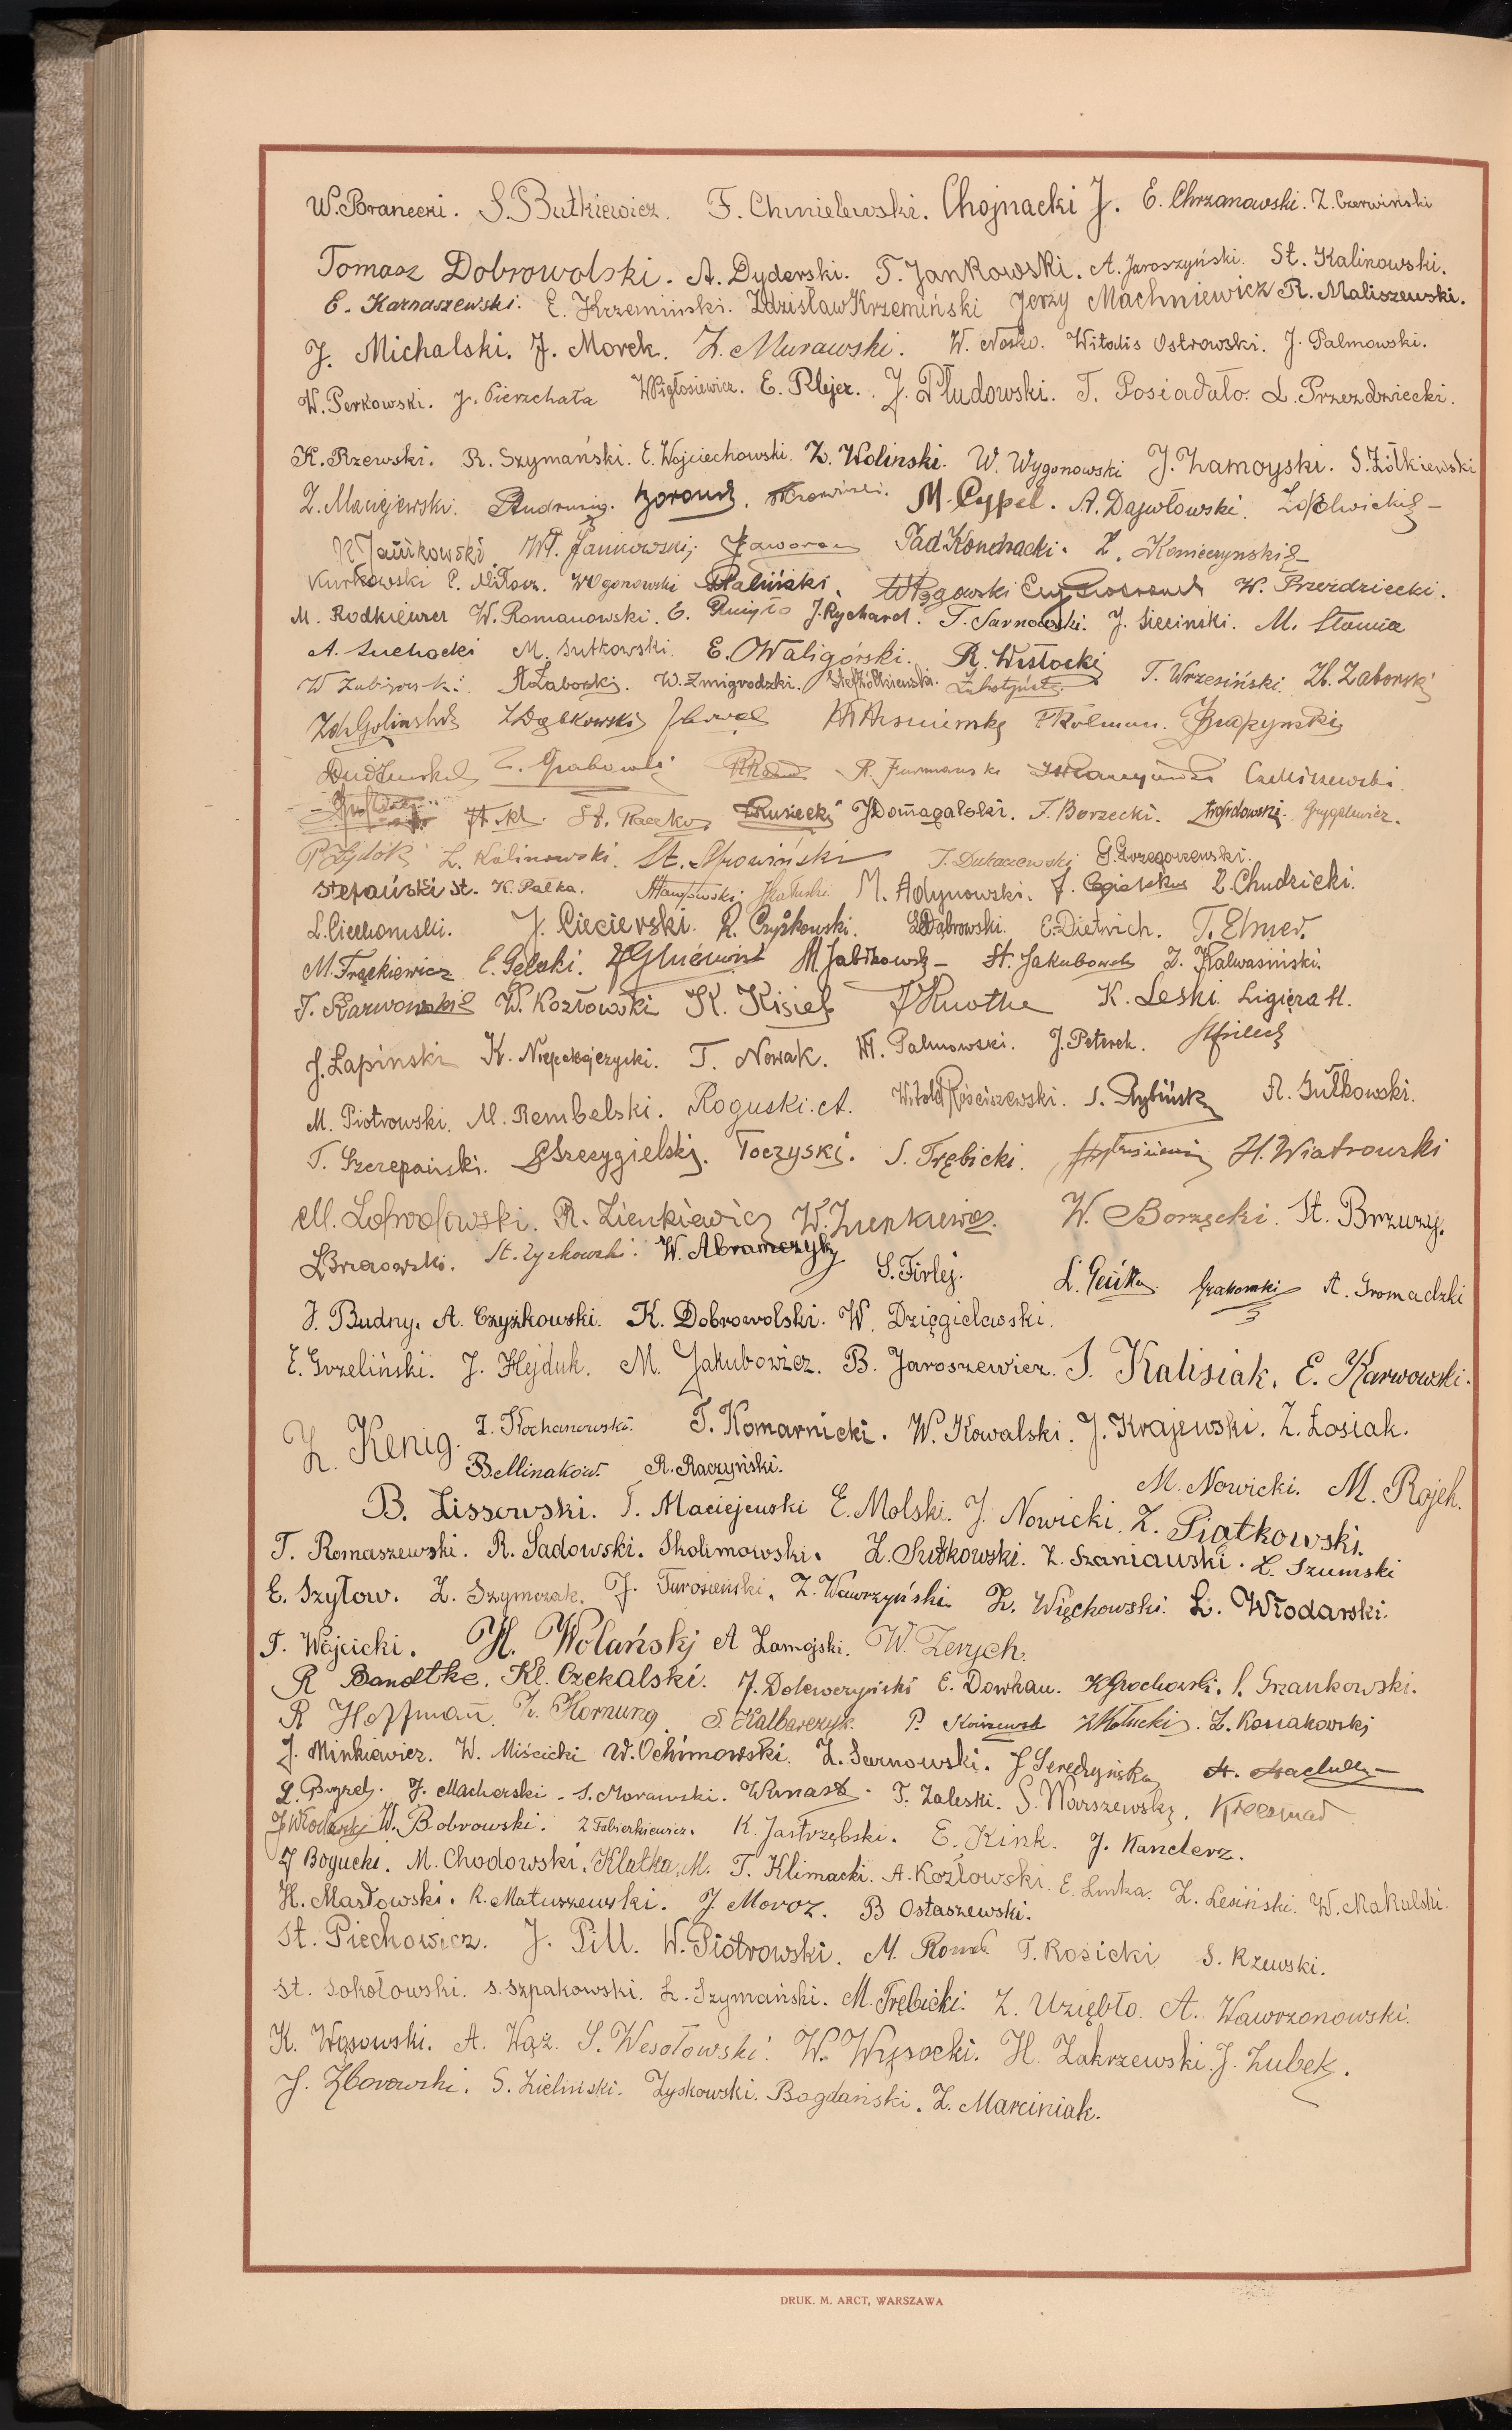 W. Baranecki. S. Butkiewicz. F. Chmielewski. Chojnacki J. E. Chrzanowski. Z. Czerwiński
Tomasz Dobrowolski. A. Dyderski. T. Jankowski. A. Jaroszyński. St. Kalinowski.
E. Karnaszewski. E. Krzemiński. Zdzisław Krzemiński Jerzy Machniewicz R. Maliszewski.
J. Michalski. J. Morek. Z. Murawski. W. Nosko. Witalis Ostrowski. J. Palmowski.
W. Perkowski. J. Pierzchała W. Pigłosiewicz. E. Plejer. J. Płudowski. T. Posiadało. L. Przezdziecki.
K. Rzewski. R. Szymański. E. Wojciechowski. Z. Woliński. W. Wygonowski J. Zamoyski. S. Żółkiewski
M. Cypel. A. Dajwłowski.
R. Jańikowski Wł. Jankowski. Jaworow Tad Konchacki. Z. Konieczynski
Kurkowski W. Ogonowski Paliński. W. Przezdziecki.
M. Rodkiewicz W. Romanowski. J. Rychard. T. Sarnowski. J. Sieciński. M. Słomia
A. Suchocki M. Sutkowski. E. Waligórski. R. Wisłocki
W. Żmigrodzki. T. Wrzesiński. Zb. Zaborski
Z. Dąbkowski
Z. Grabowski R. Furmański
St. Raczko Rusiecki J. Domagalski. T. Borzecki. Grygelewicz.
L. Kalinowski. G. Grzegorzewski.
Stefański St. K. Pałka. M. Adynowski. Z. Chudzicki.
L. Ciechomski. J. Ciecierski. R. Czyżkowski. Dąbrowski. E. Dietrich. T. Elmer.
M. Frąckiewicz E. Gelski. M. Jabłkowski St. Jakubowski Z. Kalwasiński.
T. Karwowski W. Kozłowski K. Kisiel J. Knothe K. Leski. Ligięza H.
J. Łapiński K. Niepokojczycki. T. Nowak. M. Palmowski. J. Peterek.
M. Piotrowski. M. Rembelski. Roguski A. Witold Rościszewski. S. Rybiński A. Sułkowski.
T. Szczepański. Szczygielski. Toczyski. S. Trębicki. H. Wiatrowski
R. Zienkiewicz W. Zienkiewicz. W. Borzęcki. St. Brzuzy.
St. Zyskowski. W. Abramczyk S. Firlej. Grabowski A. Gromadzki
J. Budny. A. Czyżkowski. K. Dobrowolski. W. Dzięgielewski.
E. Grzeliński. J. Hejduk. M. Jakubowicz. B. Jaroszewicz. S. Kalisiak. E. Karwowski.
Z. Kenig. Z. Kochanowski. T. Komarnicki. W. Kowalski. J. Krajewski. Z. Łosiak.
B. Minakow. R. Raczyński. M. Nowicki. M. Rojek.
B. Lissowski. T. Maciejewski E. Molski. J. Nowicki. Z. Piątkowski.
T. Romaszewski. R. Sadowski. Skolimowski. Z. Sutkowski. Z. Szaniawski. L. Szumski
E. Szyłow. Z. Szymczak. J. Turosieński. Z. Wawrzyński. Z. Więchowski. L. Włodarski.
T. Wójcicki. H. Wolański A. Zamojski. W. Zerych.
R Bandtke. Kl. Czekalski. J. Dolewczyński E. Dowhan. K. Grochowski. S. Grzankowski.
R Hoffman. Z. Hornung S. Kalbarczyk. Z. Kossakowski
J. Minkiewicz. W. Miścicki W. Ochimowski. Z. Sarnowski. J. Seredyński
J. Machorski. S. Morawski. T. Zaleski. S. Warszewski.
J. Włodarski W. Bobrowski. Z. Fabierkiewicz. K. Jastrzębski. E. Kink. J. Kanclerz.
J Bogucki. M. Chodowski. Klatka M. T. Klimacki. A. Kozłowski. E. Linka. Z. Lesiński. W. Makulski.
H. Masłowski. R. Matuszewski. J. Moroz. B Ostaszewski.
St. Piechowicz. J. Pill. W. Piotrowski. T. Rosicki S. Rzewski.
St. Sokołowski. S. Szpakowski. L. Szymański. M. Trębicki. Z. Uziębło. A. Wawrzonowski.
K. Wąsowski. A. Wąż. S. Wesołowski. W. Wysocki. H. Zakrzewski. J. Zubek.
J. Zborowski. S. Zieliński. Zyskowski. Bogdański. Z. Marciniak.
DRUK. M. ARCT, WARSZAWA